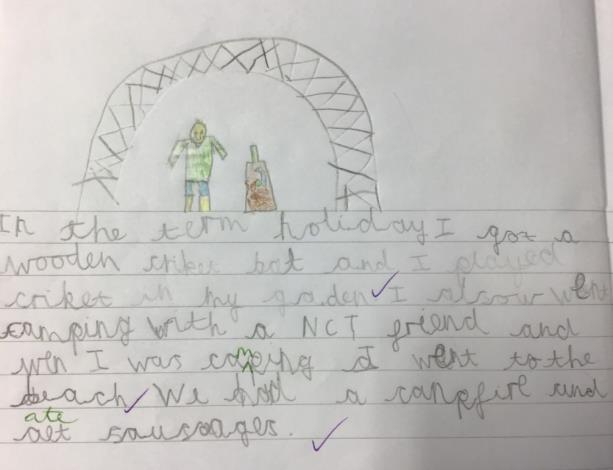 In the term holiday I got a
wooden criket bat and I played
criket in my gaden I alsow went
camping with a NCT friend and
wen I was caming I went to the
beach We had a campfire and
ate
aet sausages.